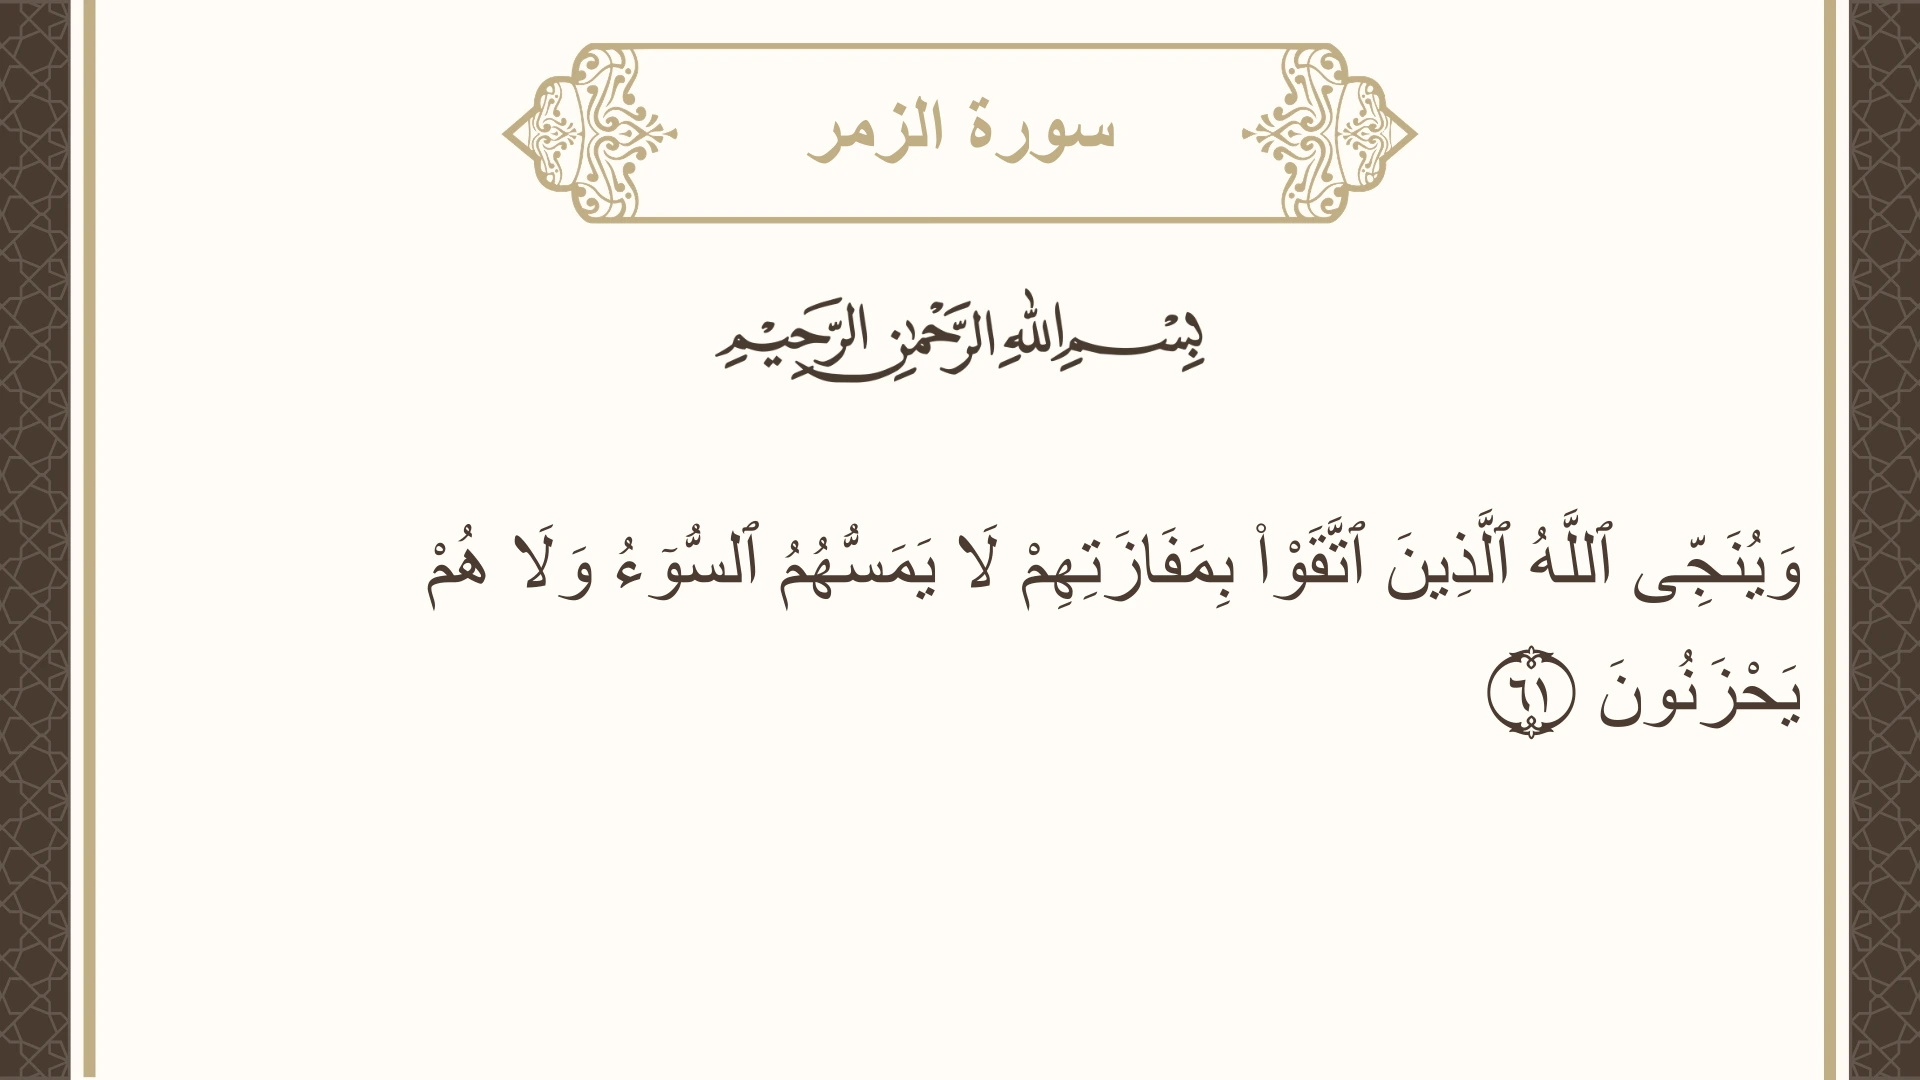 سورة الزمر
بِسْمِ اللهِ الرَّحْمٰنِ الرَّحِيْمِ
وَيُنَجِّى ٱللَّهُ ٱلَّذِينَ ٱتَّقَوْا۟ بِمَفَازَتِهِمْ لَا يَمَسُّهُمُ ٱلسُّوٓءُ وَلَا هُمْ
يَحْزَنُونَ ٦١